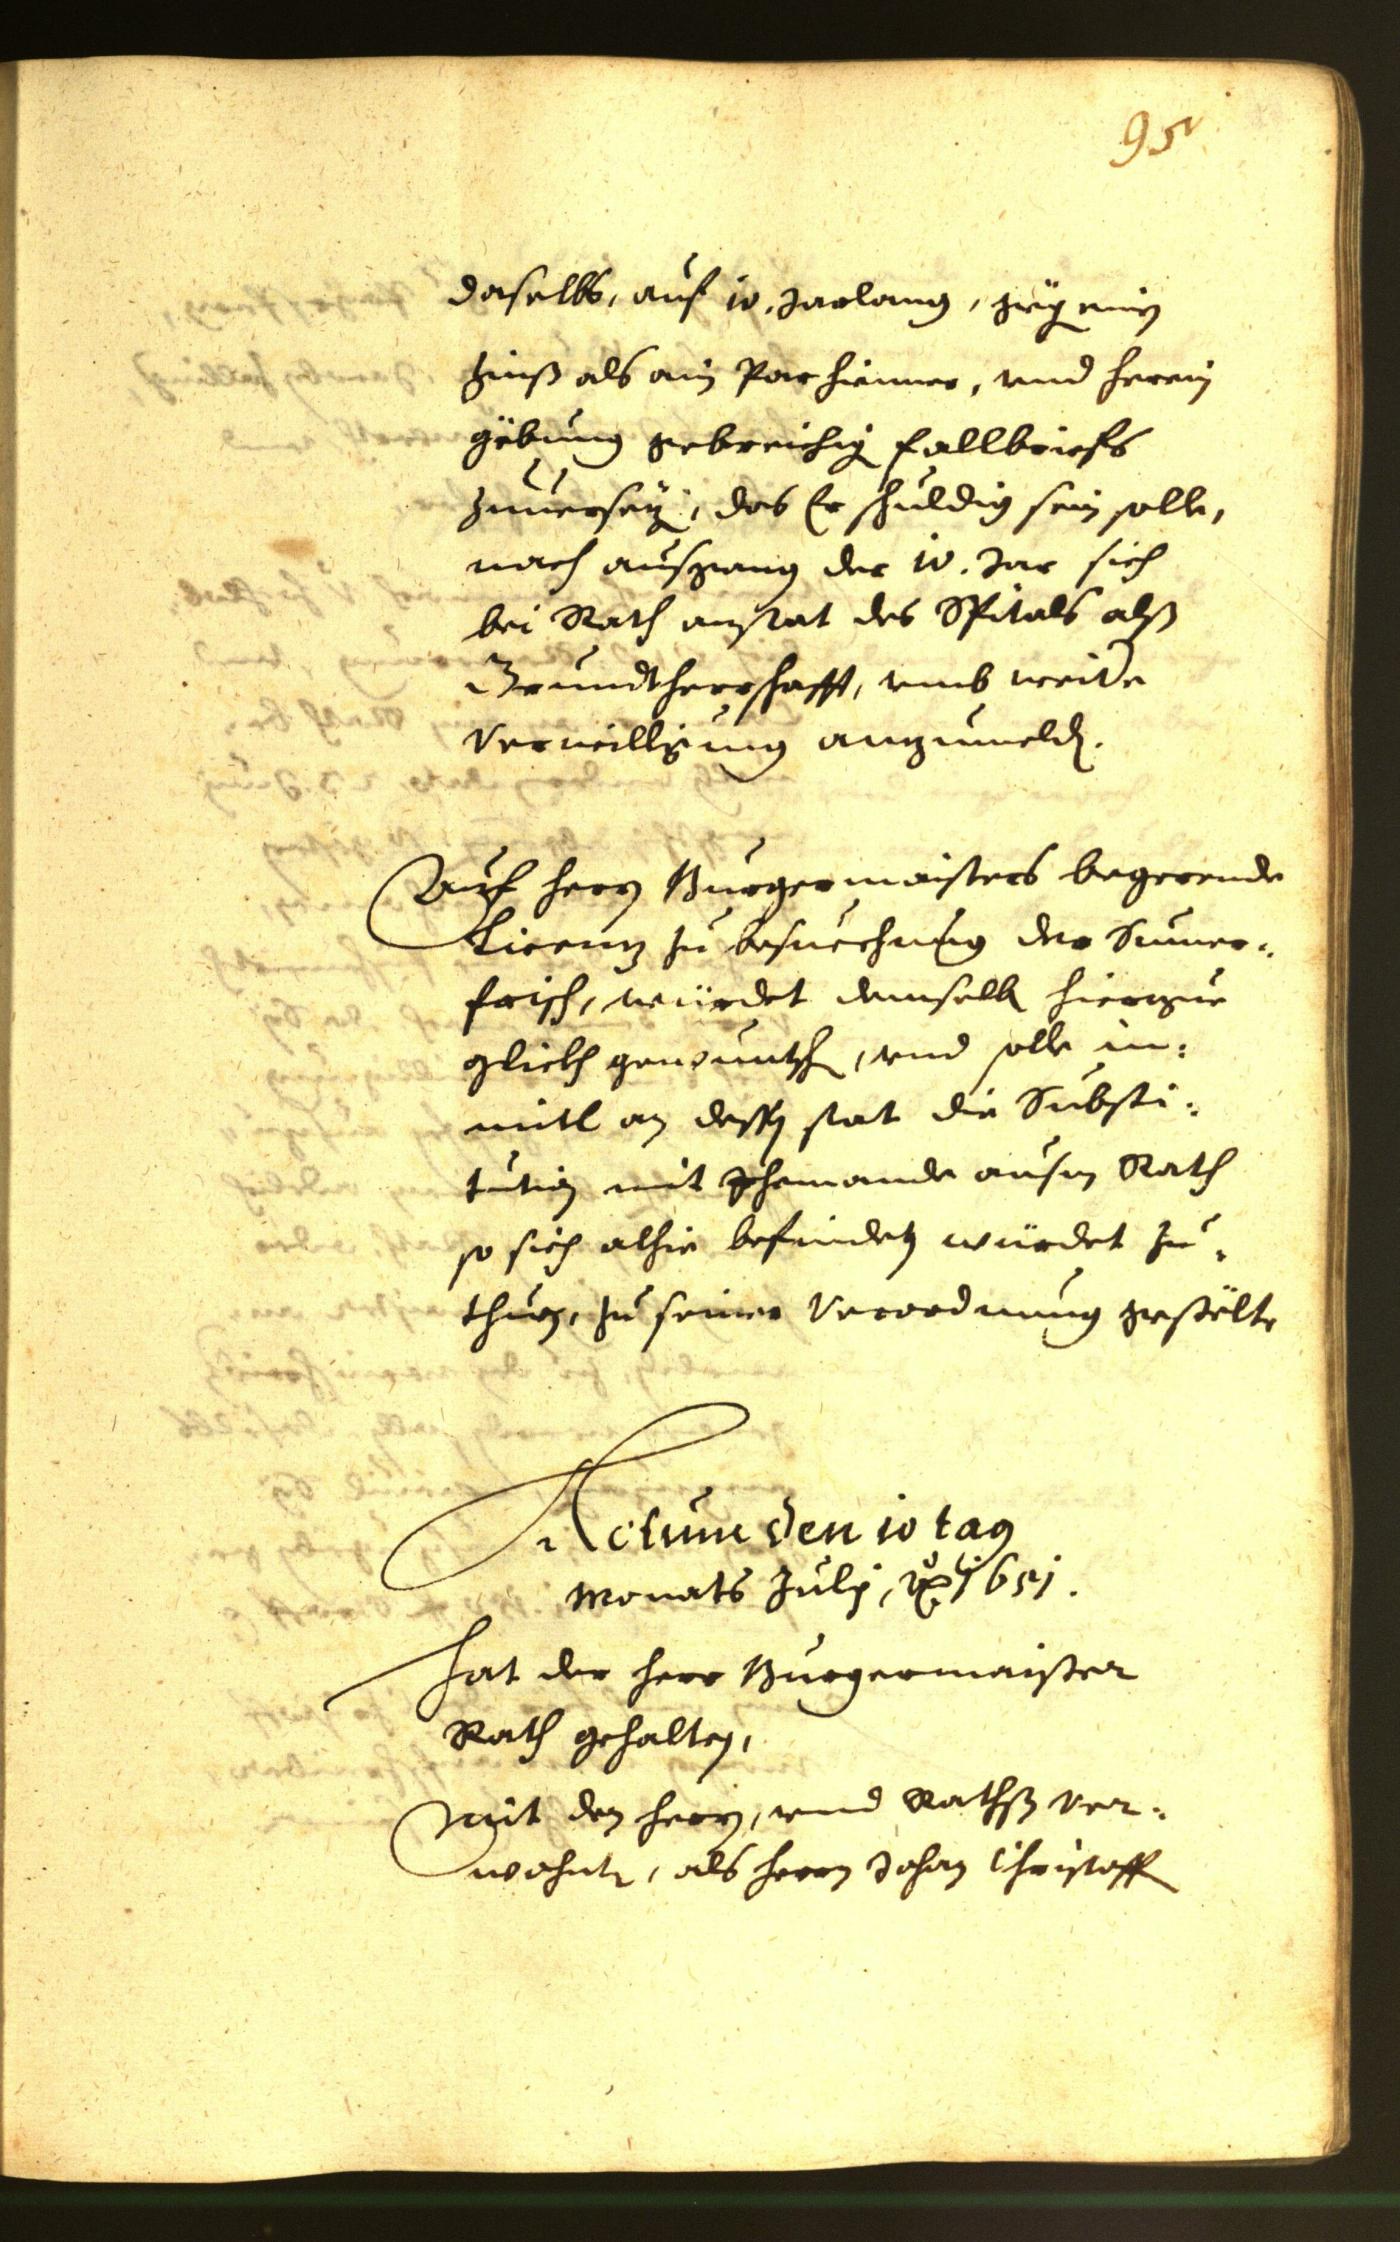 95
daselbs, auf 10. Jarlang, gegen
Zinß als ain Par hiener, und herein
gebung gebreichig fallbriefs
zuuersen, das Er schuldig sein solle,
nach ausgang der 10. Jar sich
bei Rath anstat des Spitals alß
Grundtherrschafft, umb weite
Verwilligung anzumelden.
Auf herrn Burgermaisters begerende
Licentz zu besuechung der Sumer=
frisch, würdet demselben hierzue
glickh gewuntscht, und solle in=
mitl an dessen stat die Substi=
tution mit Jhemande ausm Rath
so sich alhie befinden würdet zu=
thun, zu seiner Verordnung gestelt
Actum den 10 tag
Monats Julij, 1651.
Hat der Herr Burgermaister
Rath gehalten,
Mit den herrn, und Rathß ver=
wohnten, als herrn Johan Christoff